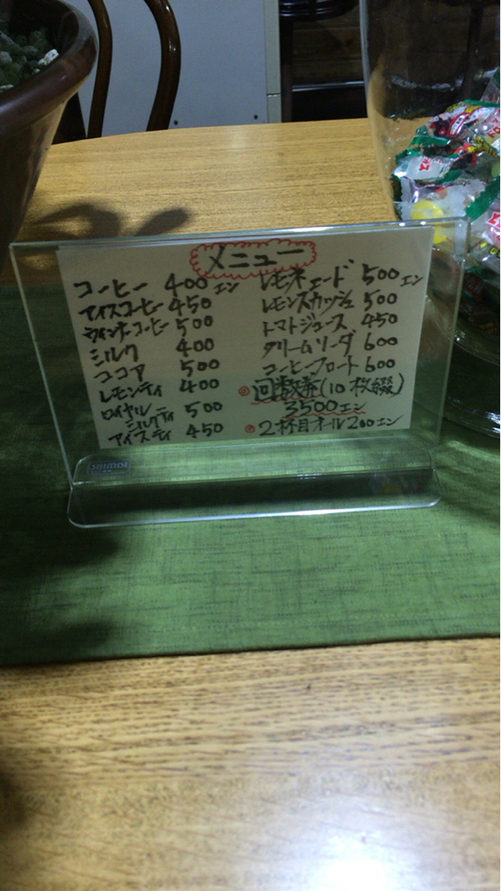 メニュー
コーヒー 400エン
アイスコーヒー 450
ウインナーコーヒー 500
ミルク 400
ココア 500
レモンティ 400
ロイヤル
ミルクティ 500
アイスティ 450
レモネェード 500エン
レモンスカッシュ 500
トマトジュース 450
クリームソーダ 600
コーヒーフロート 600
回数券(10枚綴)
3500エン
2杯目オール200エン